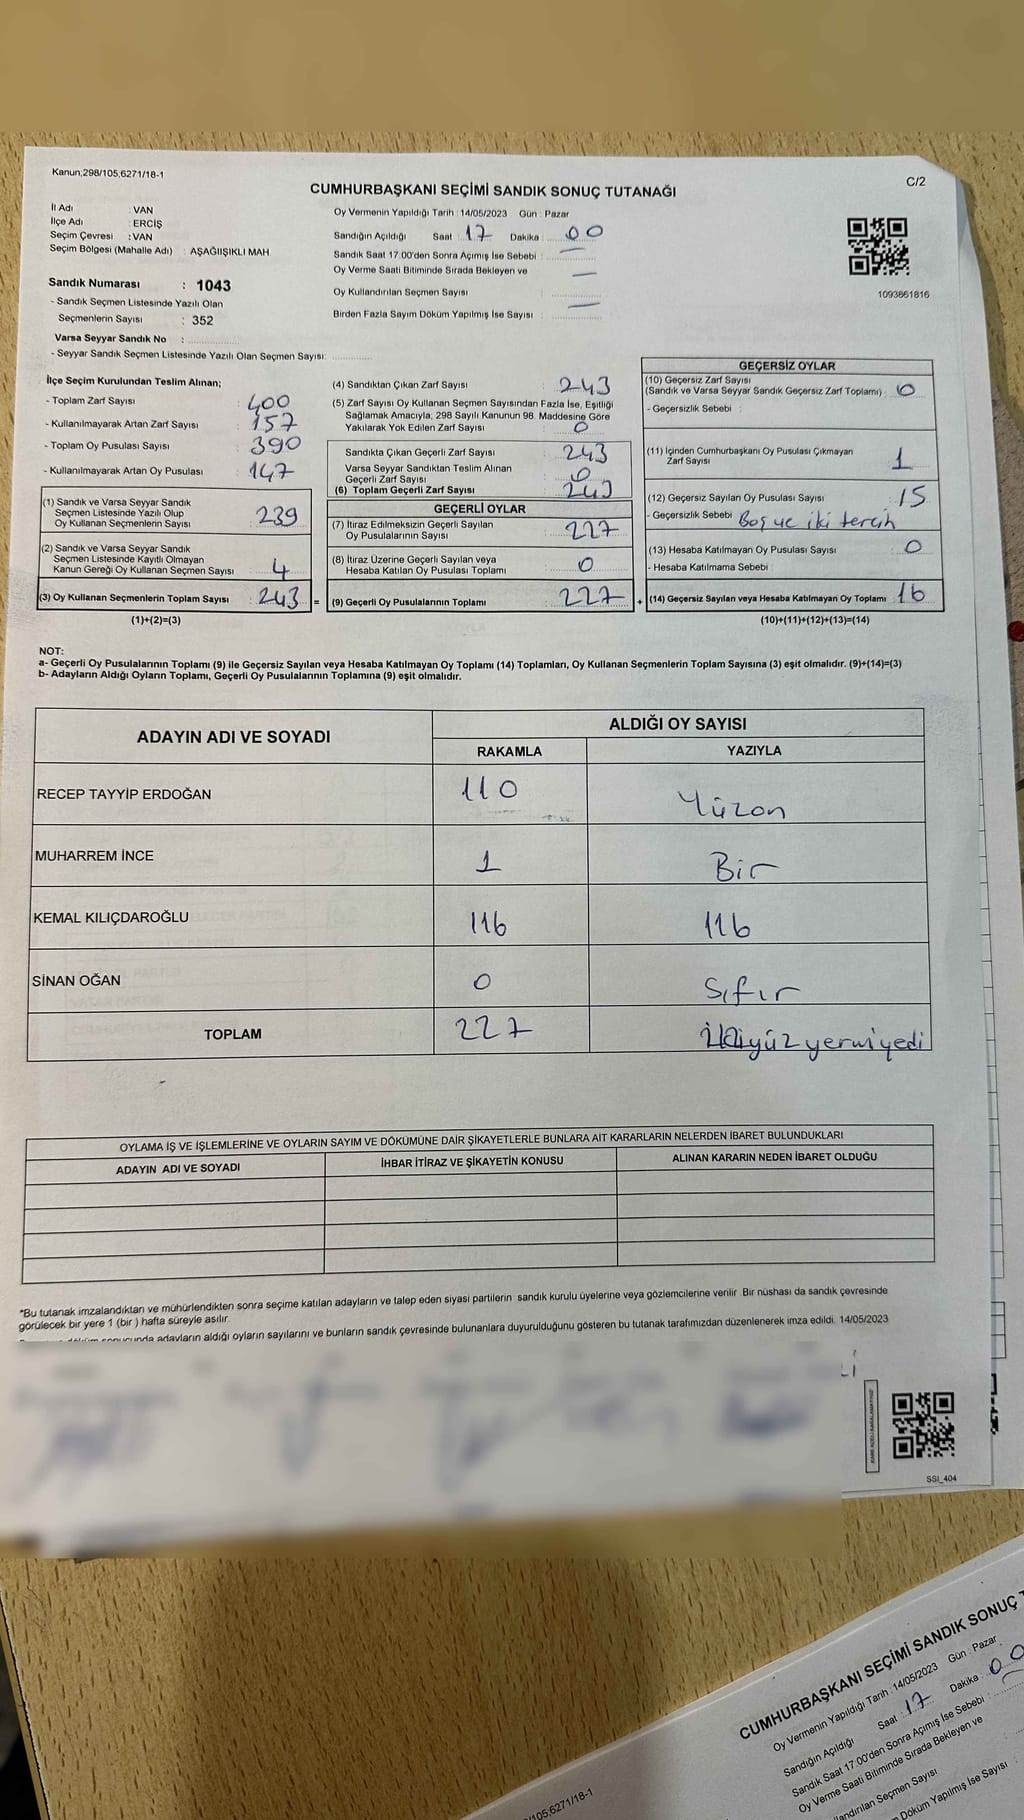 Kanun;298/105,6271/18-1
C/2
CUMHURBAŞKANI SEÇİMİ SANDIK SONUÇ TUTANAĞI
İl Adı : VAN
İlçe Adı : ERCİŞ
Seçim Çevresi : VAN
Seçim Bölgesi (Mahalle Adı) : AŞAĞIIŞIKLI MAH
Sandık Numarası : 1043
- Sandık Seçmen Listesinde Yazılı Olan
Seçmenlerin Sayısı : 352
Varsa Seyyar Sandık No :
- Seyyar Sandık Seçmen Listesinde Yazılı Olan Seçmen Sayısı:
Oy Vermenin Yapıldığı Tarih : 14/05/2023 Gün : Pazar
Sandığın Açıldığı Saat : 17 Dakika : 00
Sandık Saat 17:00'den Sonra Açımış İse Sebebi : —
Oy Verme Saati Bitiminde Sırada Bekleyen ve
Oy Kullandırılan Seçmen Sayısı : —
Birden Fazla Sayım Döküm Yapılmış İse Sayısı : —
1093861816
İlçe Seçim Kurulundan Teslim Alınan;
- Toplam Zarf Sayısı : 400
- Kullanılmayarak Artan Zarf Sayısı : 157
- Toplam Oy Pusulası Sayısı : 390
- Kullanılmayarak Artan Oy Pusulası : 147
(1) Sandık ve Varsa Seyyar Sandık
Seçmen Listesinde Yazılı Olup
Oy Kullanan Seçmenlerin Sayısı : 239
(2) Sandık ve Varsa Seyyar Sandık
Seçmen Listesinde Kayıtlı Olmayan
Kanun Gereği Oy Kullanan Seçmen Sayısı : 4
(3) Oy Kullanan Seçmenlerin Toplam Sayısı : 243 =
(1)+(2)=(3)
(4) Sandıktan Çıkan Zarf Sayısı : 243
(5) Zarf Sayısı Oy Kullanan Seçmen Sayısından Fazla İse, Eşitliği
Sağlamak Amacıyla, 298 Sayılı Kanunun 98. Maddesine Göre
Yakılarak Yok Edilen Zarf Sayısı : 0
Sandıkta Çıkan Geçerli Zarf Sayısı : 243
Varsa Seyyar Sandıktan Teslim Alınan
Geçerli Zarf Sayısı : 0
(6) Toplam Geçerli Zarf Sayısı : 243
GEÇERLİ OYLAR
(7) İtiraz Edilmeksizin Geçerli Sayılan
Oy Pusulalarının Sayısı : 227
(8) İtiraz Üzerine Geçerli Sayılan veya
Hesaba Katılan Oy Pusulası Toplamı : 0
(9) Geçerli Oy Pusulalarının Toplamı : 227 +
GEÇERSİZ OYLAR
(10) Geçersiz Zarf Sayısı
(Sandık ve Varsa Seyyar Sandık Geçersiz Zarf Toplamı) : 0
- Geçersizlik Sebebi :
(11) İçinden Cumhurbaşkanı Oy Pusulası Çıkmayan
Zarf Sayısı : 1
(12) Geçersiz Sayılan Oy Pusulası Sayısı : 15
- Geçersizlik Sebebi : Boş ve iki tercih
(13) Hesaba Katılmayan Oy Pusulası Sayısı : 0
- Hesaba Katılmama Sebebi :
(14) Geçersiz Sayılan veya Hesaba Katılmayan Oy Toplamı : 16
(10)+(11)+(12)+(13)=(14)
NOT:
a- Geçerli Oy Pusulalarının Toplamı (9) ile Geçersiz Sayılan veya Hesaba Katılmayan Oy Toplamı (14) Toplamları, Oy Kullanan Seçmenlerin Toplam Sayısına (3) eşit olmalıdır. (9)+(14)=(3)
b- Adayların Aldığı Oyların Toplamı, Geçerli Oy Pusulalarının Toplamına (9) eşit olmalıdır.
ADAYIN ADI VE SOYADI
ALDIĞI OY SAYISI
RAKAMLA YAZIYLA
RECEP TAYYİP ERDOĞAN 110 Yüzon
MUHARREM İNCE 1 Bir
KEMAL KILIÇDAROĞLU 116 116
SİNAN OĞAN 0 Sıfır
TOPLAM 227 İkiyüzyermiyedi
OYLAMA İŞ VE İŞLEMLERİNE VE OYLARIN SAYIM VE DÖKÜMÜNE DAİR ŞİKAYETLERLE BUNLARA AİT KARARLARIN NELERDEN İBARET BULUNDUKLARI
ADAYIN ADI VE SOYADI İHBAR İTİRAZ VE ŞİKAYETİN KONUSU ALINAN KARARIN NEDEN İBARET OLDUĞU
*Bu tutanak imzalandıktan ve mühürlendikten sonra seçime katılan adayların ve talep eden siyasi partilerin sandık kurulu üyelerine ve gözlemcilerine verilir. Bir nüshası da sandık çevresinde
görülecek bir yere 1 (bir ) hafta süreyle asılır.
adayların aldığı oyların sayılarını ve bunların sandık çevresinde bulunanlara duyurulduğunu gösteren bu tutanak tarafımızdan düzenlenerek imza edildi. 14/05/2023
SSI_404
CUMHURBAŞKANI SEÇİMİ SANDIK SONUÇ
Oy Vermenin Yapıldığı Tarih : 14/05/2023 Gün : Pazar
Sandığın Açıldığı Saat : 17 Dakika : 00
Sandık Saat 17:00'den Sonra Açımış İse Sebebi :
Oy Verme Saati Bitiminde Sırada Bekleyen ve
Seçmen Sayısı
Döküm Yapılmış İse Sayısı :
105,6271/18-1